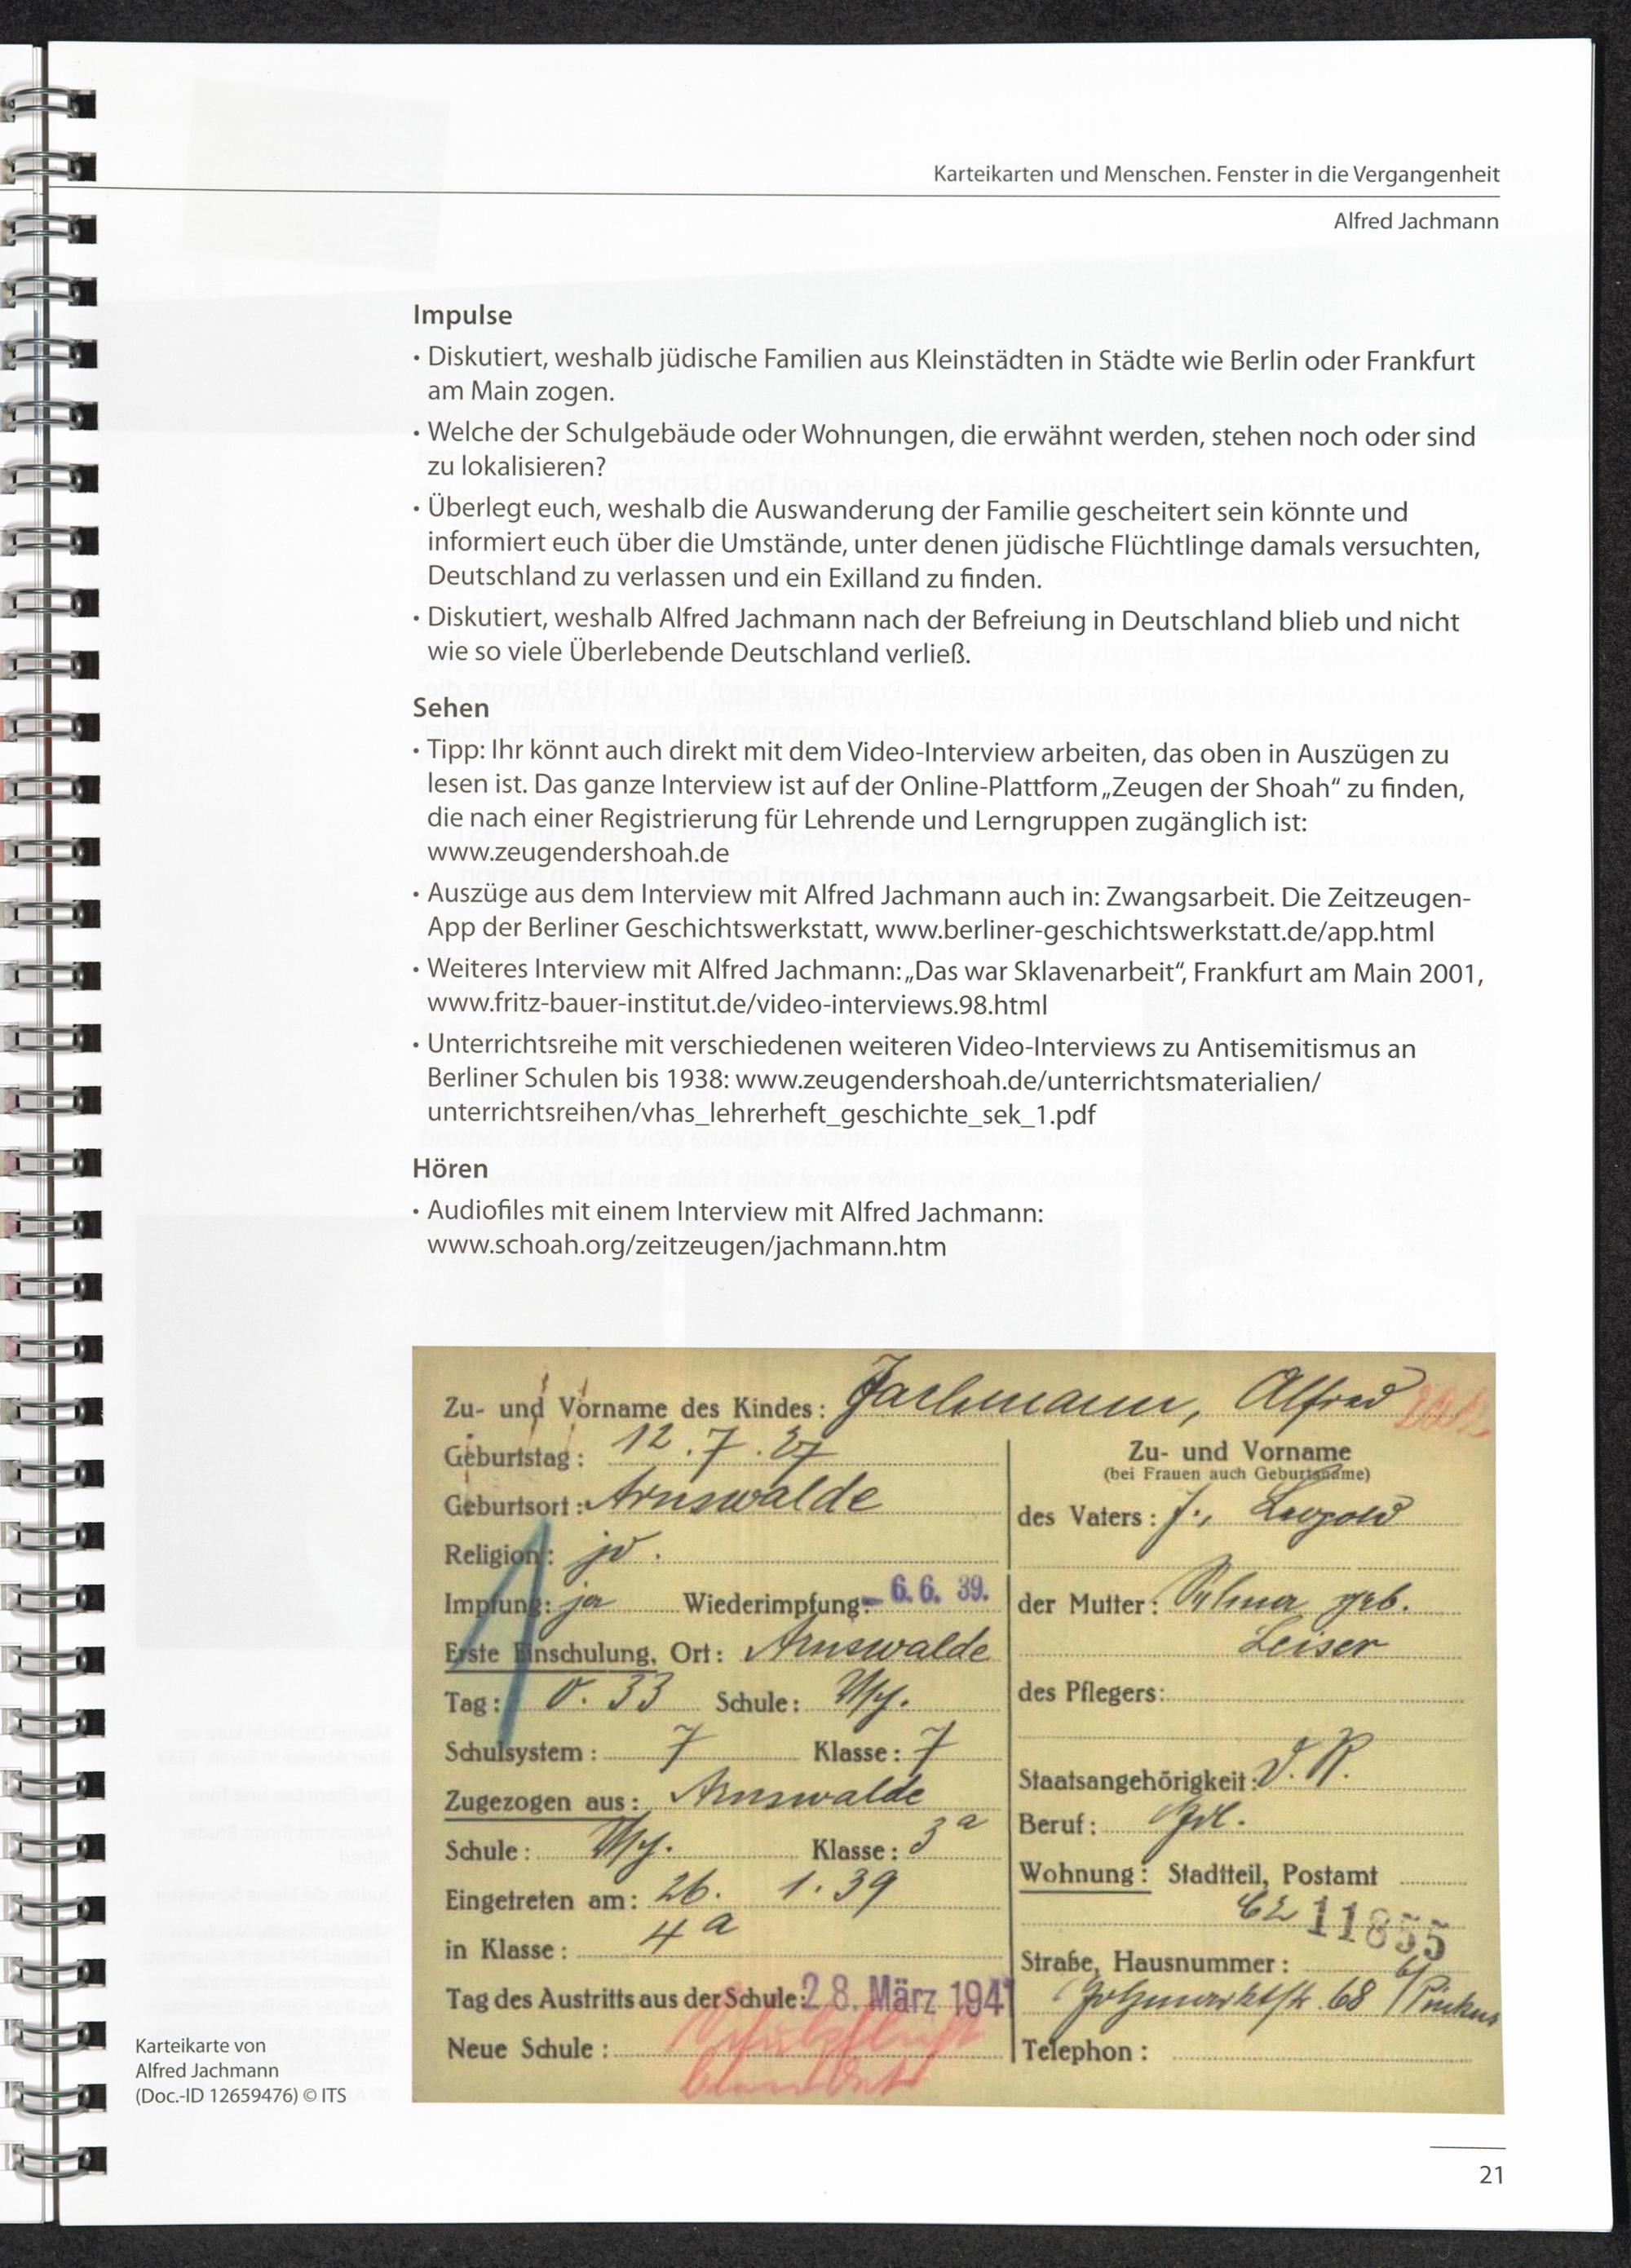 Karteikarten und Menschen. Fenster in die Vergangenheit
Alfred Jachmann
Impulse
• Diskutiert, weshalb jüdische Familien aus Kleinstädten in Städte wie Berlin oder Frankfurt
am Main zogen.
• Welche der Schulgebäude oder Wohnungen, die erwähnt werden, stehen noch oder sind
zu lokalisieren?
• Überlegt euch, weshalb die Auswanderung der Familie gescheitert sein könnte und
informiert euch über die Umstände, unter denen jüdische Flüchtlinge damals versuchten,
Deutschland zu verlassen und ein Exilland zu finden.
• Diskutiert, weshalb Alfred Jachmann nach der Befreiung in Deutschland blieb und nicht
wie so viele Überlebende Deutschland verließ.
Sehen
• Tipp: Ihr könnt auch direkt mit dem Video-Interview arbeiten, das oben in Auszügen zu
lesen ist. Das ganze Interview ist auf der Online-Plattform „Zeugen der Shoah“ zu finden,
die nach einer Registrierung für Lehrende und Lerngruppen zugänglich ist:
www.zeugendershoah.de
• Auszüge aus dem Interview mit Alfred Jachmann auch in: Zwangsarbeit. Die Zeitzeugen-
App der Berliner Geschichtswerkstatt, www.berliner-geschichtswerkstatt.de/app.html
• Weiteres Interview mit Alfred Jachmann: „Das war Sklavenarbeit“, Frankfurt am Main 2001,
www.fritz-bauer-institut.de/video-interviews.98.html
• Unterrichtsreihe mit verschiedenen weiteren Video-Interviews zu Antisemitismus an
Berliner Schulen bis 1938: www.zeugendershoah.de/unterrichtsmaterialien/
unterrichtsreihen/vhas_lehrerheft_geschichte_sek_1.pdf
Hören
• Audiofiles mit einem Interview mit Alfred Jachmann:
www.schoah.org/zeitzeugen/jachmann.htm
Zu- und Vorname des Kindes: Jachmann, Alfred
Geburtstag: 12.7.27
Geburtsort: Arnswalde
Religion: jd.
Impfung: ja Wiederimpfung: 6.6.39.
Erste Einschulung, Ort: Arnswalde
Tag: O. 33 Schule:
Schulsystem: 7 Klasse: 7
Zugezogen aus: Arnswalde
Schule: Klasse: 3a
Eingetreten am: 26. 1. 39
in Klasse: 4a
Tag des Austritts aus der Schule: 28. März 1941
Neue Schule:
Zu- und Vorname
(bei Frauen auch Geburtsname)
des Vaters: J., Leopold
der Mutter: geb.
Leiser
des Pflegers:
Staatsangehörigkeit: D. R.
Beruf:
Wohnung: Stadtteil, Postamt
C2 11855
Straße, Hausnummer:
68 b/Pinkus
Telephon:
Karteikarte von
Alfred Jachmann
(Doc.-ID 12659476) © ITS
21